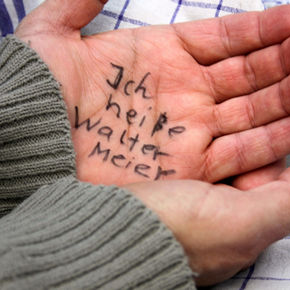 Ich
heiße
Walter
Meier